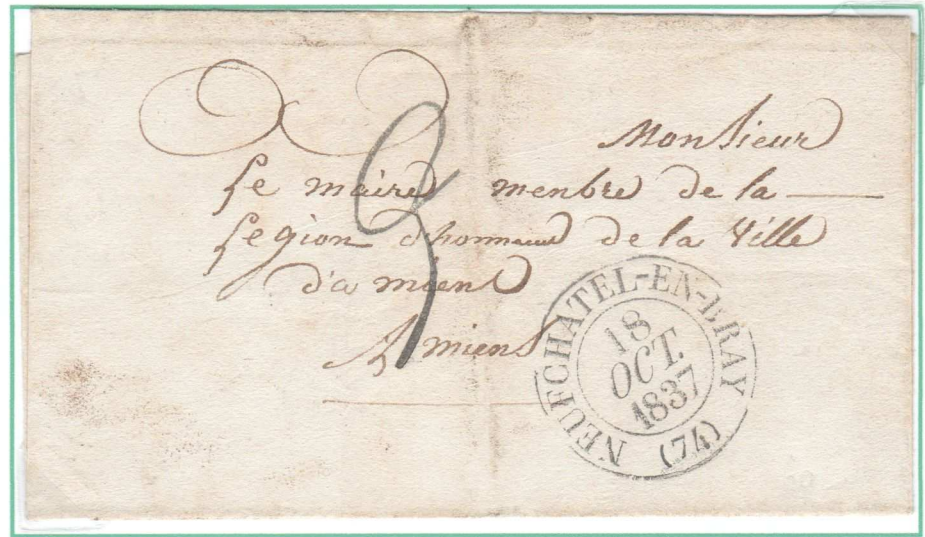 Monsieur
Le maire menbre de la
Legion d'honneur de la Ville
d'amiens
Amiens
3
NEUFCHATEL-EN-BRAY (74)
18
OCT.
1837